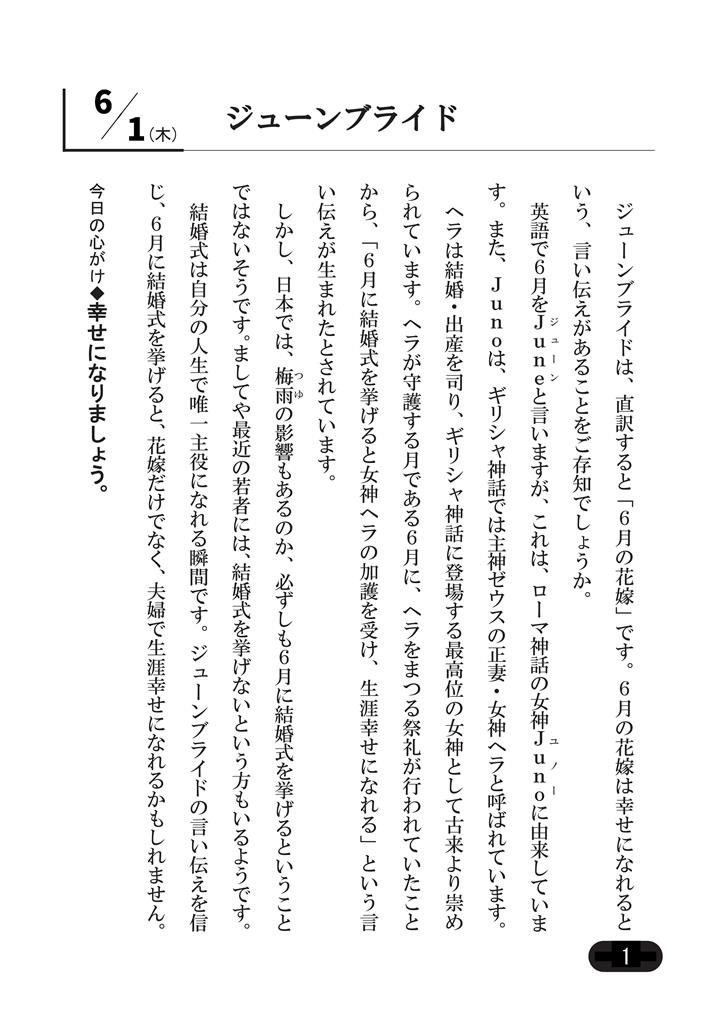 6/1(木)
ジューンブライド
ジューンブライドは、直訳すると「6月の花嫁」です。6月の花嫁は幸せになれると
いう、言い伝えがあることをご存知でしょうか。
英語で6月をJuneと言いますが、これは、ローマ神話の女神Junoに由来していま
ジューン
ユノー
す。また、Junoは、ギリシャ神話では主神ゼウスの正妻・女神ヘラと呼ばれています。
ヘラは結婚・出産を司り、ギリシャ神話に登場する最高位の女神として古来より崇め
られています。ヘラが守護する月である6月に、ヘラをまつる祭礼が行われていたこと
から、「6月に結婚式を挙げると女神ヘラの加護を受け、生涯幸せになれる」という言
い伝えが生まれたとされています。
しかし、日本では、梅雨の影響もあるのか、必ずしも6月に結婚式を挙げるということ
つゆ
ではないそうです。ましてや最近の若者には、結婚式を挙げないという方もいるようです。
結婚式は自分の人生で唯一主役になれる瞬間です。ジューンブライドの言い伝えを信
じ、6月に結婚式を挙げると、花嫁だけでなく、夫婦で生涯幸せになれるかもしれません。
今日の心がけ◆幸せになりましょう。
1